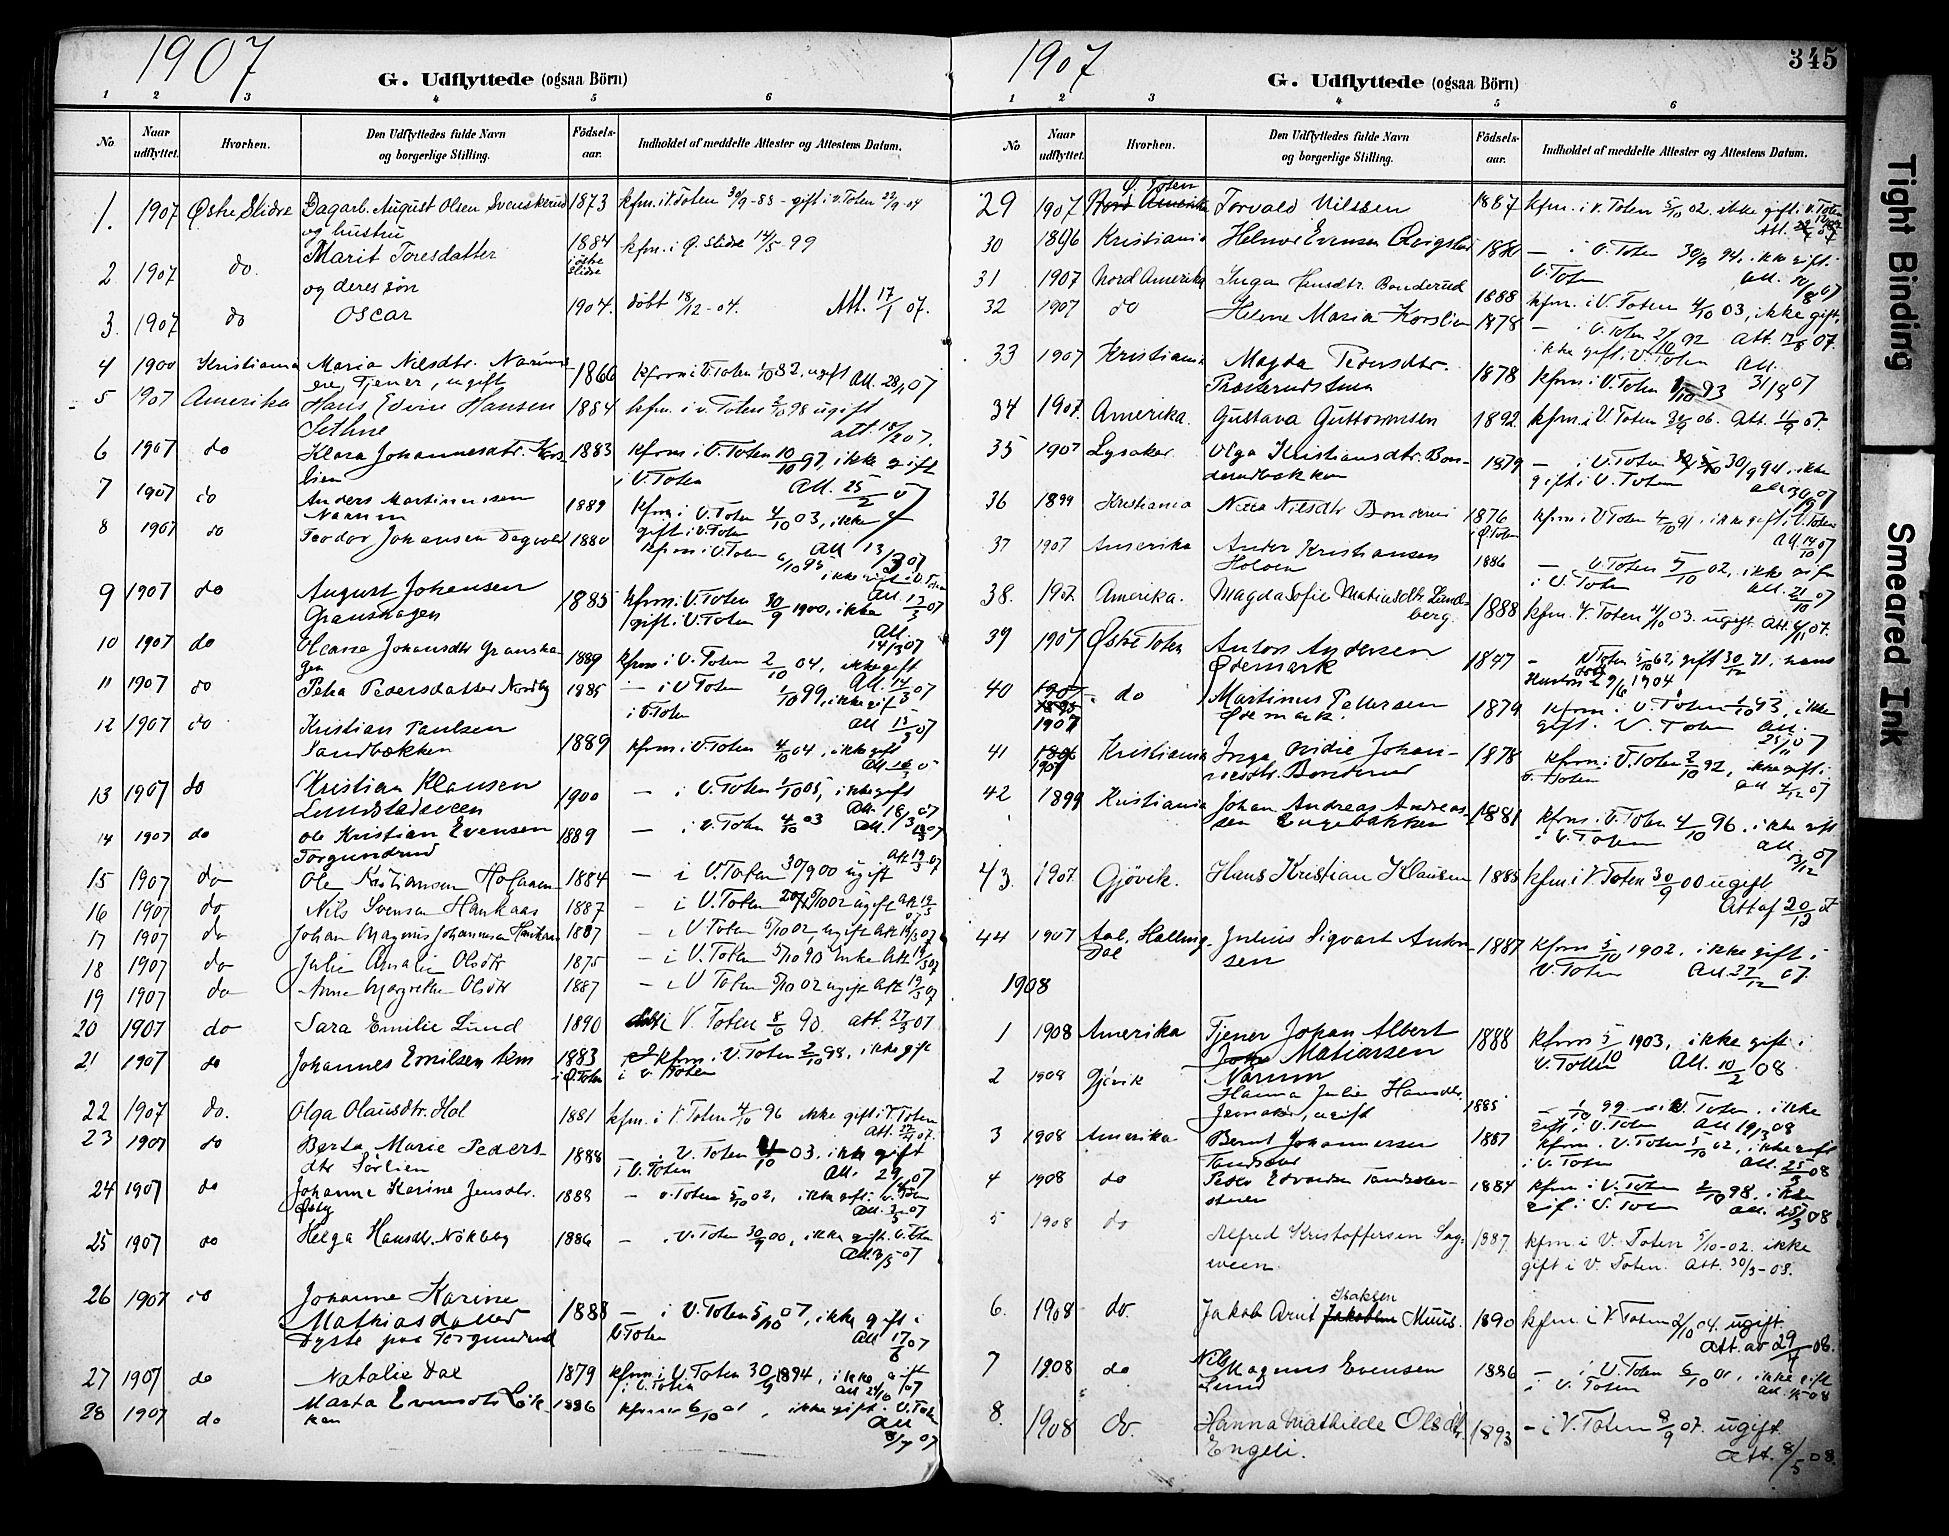 1907
G. Udflyttede (ogsaa Börn)
1 2 3 4 5 6
No
Naar udflyttet.
Hvorhen.
Den Udflyttedes fulde Navn og borgerlige Stilling.
Födsels-aar.
Indholdet af meddelte Attester og Attestens Datum.
1. 1907 Østre Slidre Dagarb. August Olsen Svenskerud 1873 kfm. i V. Toten 30/9-88 - gift i V. Toten
og hustru
2 1907 do. Marit Toresdatter 1884 i østre Slidre kfm. i Ø. Slidre 14/5 99
og deres søn
3. 1907 do Oscar 1904. döbt 18/12-04. Att. 17/1 07.
4 1900 Kristiania Maria Nilsdtr. 1866 kfrm i V. Toten 1/10 82, ugift Att. 07
Tjener, ugift
5 1907 Amerika Hans Edvin Hansen 1884 kfm. i V. Toten 98 ugift
Sethne att. 07.
6 1907 do Klara Johannesdtr. Kors- 1883 kfrm i V. Toten 10/10 97, ikke gift
lien i V. Toten Att. 25/2 07
7 1907 do Anders Martinussen 1889 kfrm i V. Toten 4/10 03, ikke
gift i V. Toten
8 1907 do Teodor Johansen 1880 kfrm i V. Toten Att 13/3 07
ikke gift i V. Toten
9 1907 do August Johansen 1885 kfrm. i V. Toten 30/9 1900, ikke
Granshagen gift i V. Toten Att. 07
10 1907 do Johansdtr Gransha 1889 kfrm i V. Toten 2/10 04, ikke gift
gen Att. 14/3 07
11 1907 do Petra Pedersdatter Nordby 1885 — i V Toten 1/10 99, ikke gif
i V. Toten Att 07
12 1907 do Kristian Paulsen 1889 kfrm i V. Toten 4/10 04, ikke gift
Sandbækken
13 1907 do Kristian Klausen 1900 — i V. Toten 1/10 05, ikke gift
Att. 18/3 07
14 1907 do Ole Kristian Evensen 1889 — i V. Toten 4/10 03 Att.
Torgunrud
15 1907 do Ole Kristiansen 1884 — i V. Toten 30/9 00 ugift Att 19/3 07
16 1907 do Nils Svensen Haukaas 1887 — i V. Toten 5/10 02 ugift Att 19/3 07
17 1907 do Johan Magnus Johannesen 1887 — i V Toten 5/10 02, ugift Att 19/3 07
18 1907 do Julie Amalie Olsdtr 1875 — i V. Toten 5/10 90 enke Att 19/3 07
19 1907 do Anne Margrethe Olsdtr 1887 — i V Toten 5/10 02 ugift Att 19/3 07
20 1907 do Sara Emilie Lund 1890 V. Toten 8/6 90. att. 27/3 07
21 1907 do Johannes Emilsen 1883 i Ø. Toten kfrm. i V. Toten 2/10 98, ikke gift
i V. Toten
22 1907 do. Olga Olausdtr. Hol 1881 kfm. i V. Toten 4/10 96 ikke gift i V. Toten
Att. 07.
23 1907 do Berta Marie Peders- 1888 — i V. Toten 4/10 03, ikke gift
dtr Sörlien i V. Toten Att. 07
24 1907 do Johanne Karine Jensdtr. 1888 — V. Toten 5/10 02, ikke gift i V. Toten
Att. 3/5 07
25 1907 do Helga Hansdtr. Nökleby 1886 — i V. Toten 30/9 00, ikke gift i V. Toten
Att. 3/5 07
26 1907 do Johanne Karine 1888 — i V. Toten 5/10 07, ikke gift i
Mathiasdatter V. Toten Att 17/6 07
Dyste paa Torgunrud
27 1907 do Natalie Dal 1879 kfrm i V. Toten 30/9 1894, ikke gift
i V. Toten
28 1907 do Marta Evensdtr Lök- 1886 kfrm 6/10 01, ikke gift i V. Toten
ken Att 8/7 07
1907
345
G. Udflyttede (ogsaa Börn)
1 2 3 4 5 6
No
Naar udflyttet.
Hvorhen.
Den Udflyttedes fulde Navn og borgerlige Stilling.
Födsels-aar.
Indholdet af meddelte Attester og Attestens Datum.
Ø. Toten
29 1907 Nord Amerika Torvald Nilssen 1887 kfm. i V. Toten 5/10 02. ikke gift i V. Toten
30 1896 Kristiania Helmer Evensen 1880 — i V. Toten 30/9 94. ikke gift i
V. Toten Att. 07
31 1907 Nord Amerika Inga Hansdtr. Bonderud 1888 kfm. i V. Toten 4/10 03, ikke gift,
32 1907 do Helene Maria Korslien 1878 — i V. Toten 2/10 92 Att. 07.
ikke gift i V. Toten
33 1907 Kristiania Magda Pedersdtr. 1878 kfrm. i V. Toten 1/10 93 Att. 31/8 07
34 1907. Amerika. Gustava Guttormsen 1892 kfm. i V Toten 30/9 06. Att. 07.
35 1907 Lysaker Olga Kristiansdtr. Bon- 1879 — i V. Toten 30/9 94, ikke
derudbakken gift i V. Toten
36 1899 Kristiania Nilsdtr Bonderud 1876 Ø. Toten kfrm. i V Toten 4/10 91, ikke gift i V. Toten
Att 14/10 07
37 1907 Amerika Kristiansen 1886 — V. Toten 5/10 02, ikke gift
i V. Toten Att. 21/10 07
38. 1907. Amerika. Magda Sofie Matiasdtr. Lund- 1888 kfm. V. Toten 4/10 03. ugift. Att. 07.
berg.
39 1907 Østre Toten Anton Andersen 1847 — V Toten 5/10 62, gift 30/12 71, hans
Ødemark Hustru död 2/6 1904
40 1907 do Martinus Pettersen 1879 kfrm. i V. Toten 1/10 93, ikke
Ødemark. gift i V. Toten Att. 25/11 07
41 1896 1907 Kristiania Inga Ovidie Johan- 1878 kfrm. i V. Toten 2/10 92, ikke gift i
nesdtr. Bonderud V. Toten Att 4/12 07
42 1899 Kristiania Johan Andreas Andreas- 1881 kfrm. i V. Toten 4/10 96. ikke gift
sen Engebakken i V. Toten Att 13/12 07
43. 1907. Gjövik. Hans Kristian Klausen 1885 kfm. i V. Toten 30/9 00 ugift
Att af 20/12 07
44 1907 Aal, Halling- Julius Sigvart Anton- 1887 kfrm 5/10 1902, ikke gift i
Dal sen V. Toten Att. 27/12 07.
1908
1 1908 Amerika Tjener Johan Albert 1888 kfrm 5/10 1903, ikke gift i
Matiassen V. Toten Att. 10/2 08.
Narum
2 1908 Gjövik Hanna Julie Hansdtr. 1885 — 1/10 99 i V. Toten, ikke
ugift gift i V. Toten Att 19/3 08
3 1908 Amerika Bernt Johannessen 1887 kfrm. i V. Toten 5/10 02, ikke gift
i V. Toten Att. 25/3 08
4 1908 do Peder Edvardsen 1884 kfrm. i V. Toten 2/10 98, ikke
gif. i V. Toten Att. 25/3 08
5 1908 do Alfred Kristoffersen Sag- 1887. kfm. i V. Toten 5/10-02. ikke
ween. gift i V. Toten. Att. 30/3-08.
Isaksen
6. 1908 do. Jakob Arnt Jakobsen Muus. 1890 kfm. i V Toten 2/10 04. ugift.
Att. av 29/4 08.
7 1908 do Nils Magnus Evensen 1886 — i V. Toten 6/10 01, ikke gift
Lund i V. Toten Att. 08
8. 1908 do. Hanna Mathilde Olsdtr. 1893 — i V. Toten 8/9 07. ugift
Engeli. Att. 8/5 08.
Tight Binding
Smeared Ink